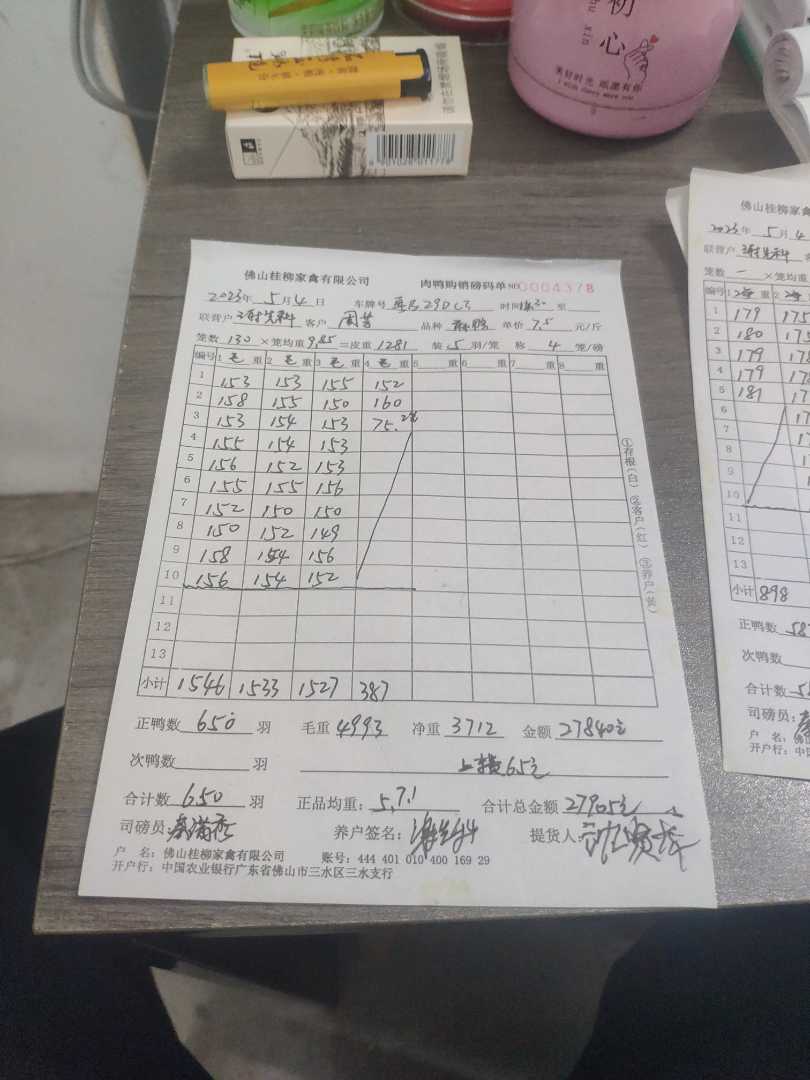 初
心
hu
xin
美好时光 纸愿有你
I wish there more you
佛山桂柳家禽有限公司 肉鸭购销磅码单 NO 0004378
2023年 5月 4日 车牌号 290C3 时间 至
联营户 谢先科 客户 周芳 品种 单价 7.5 元/斤
笼数 130 ×笼均重 9.85 =皮重 1281 装 5 羽/笼 称 4 笼/磅
编号 1 毛 重 2 毛 重 3 毛 重 4 毛 重 5 重 6 重 7 重 8 重
1 153 153 155 152
2 158 155 150 160
3 153 154 153 75.2笼
4 155 154 153
5 156 152 153
6 155 155 156
7 152 150 150
8 150 152 149
9 158 154 156
10 156 154 152
11
12
13
小计 1546 1533 1527 387
①存根(白) ②客户(红) ③养户(黄)
正鸭数 650 羽 毛重 4993 净重 3712 金额 27840元
次鸭数 羽 65元
合计数 650 羽 正品均重: 5.71 合计总金额 27905元
司磅员: 养户签名: 提货人:
户 名: 佛山桂柳家禽有限公司 账号: 444 401 010 400 169 29
开户行: 中国农业银行广东省佛山市三水区三水支行
佛山桂柳家禽
2023年 5月 4
联营户 谢先科
笼数 一 ×笼均重
编号 1 重 2
1 179 175
2 180 175
3 179
4 179
5 181
6
7
8
9
10
11
12
13
小计 898
正鸭数
次鸭数
合计数
司磅员:
户 名: 佛山
开户行: 中国